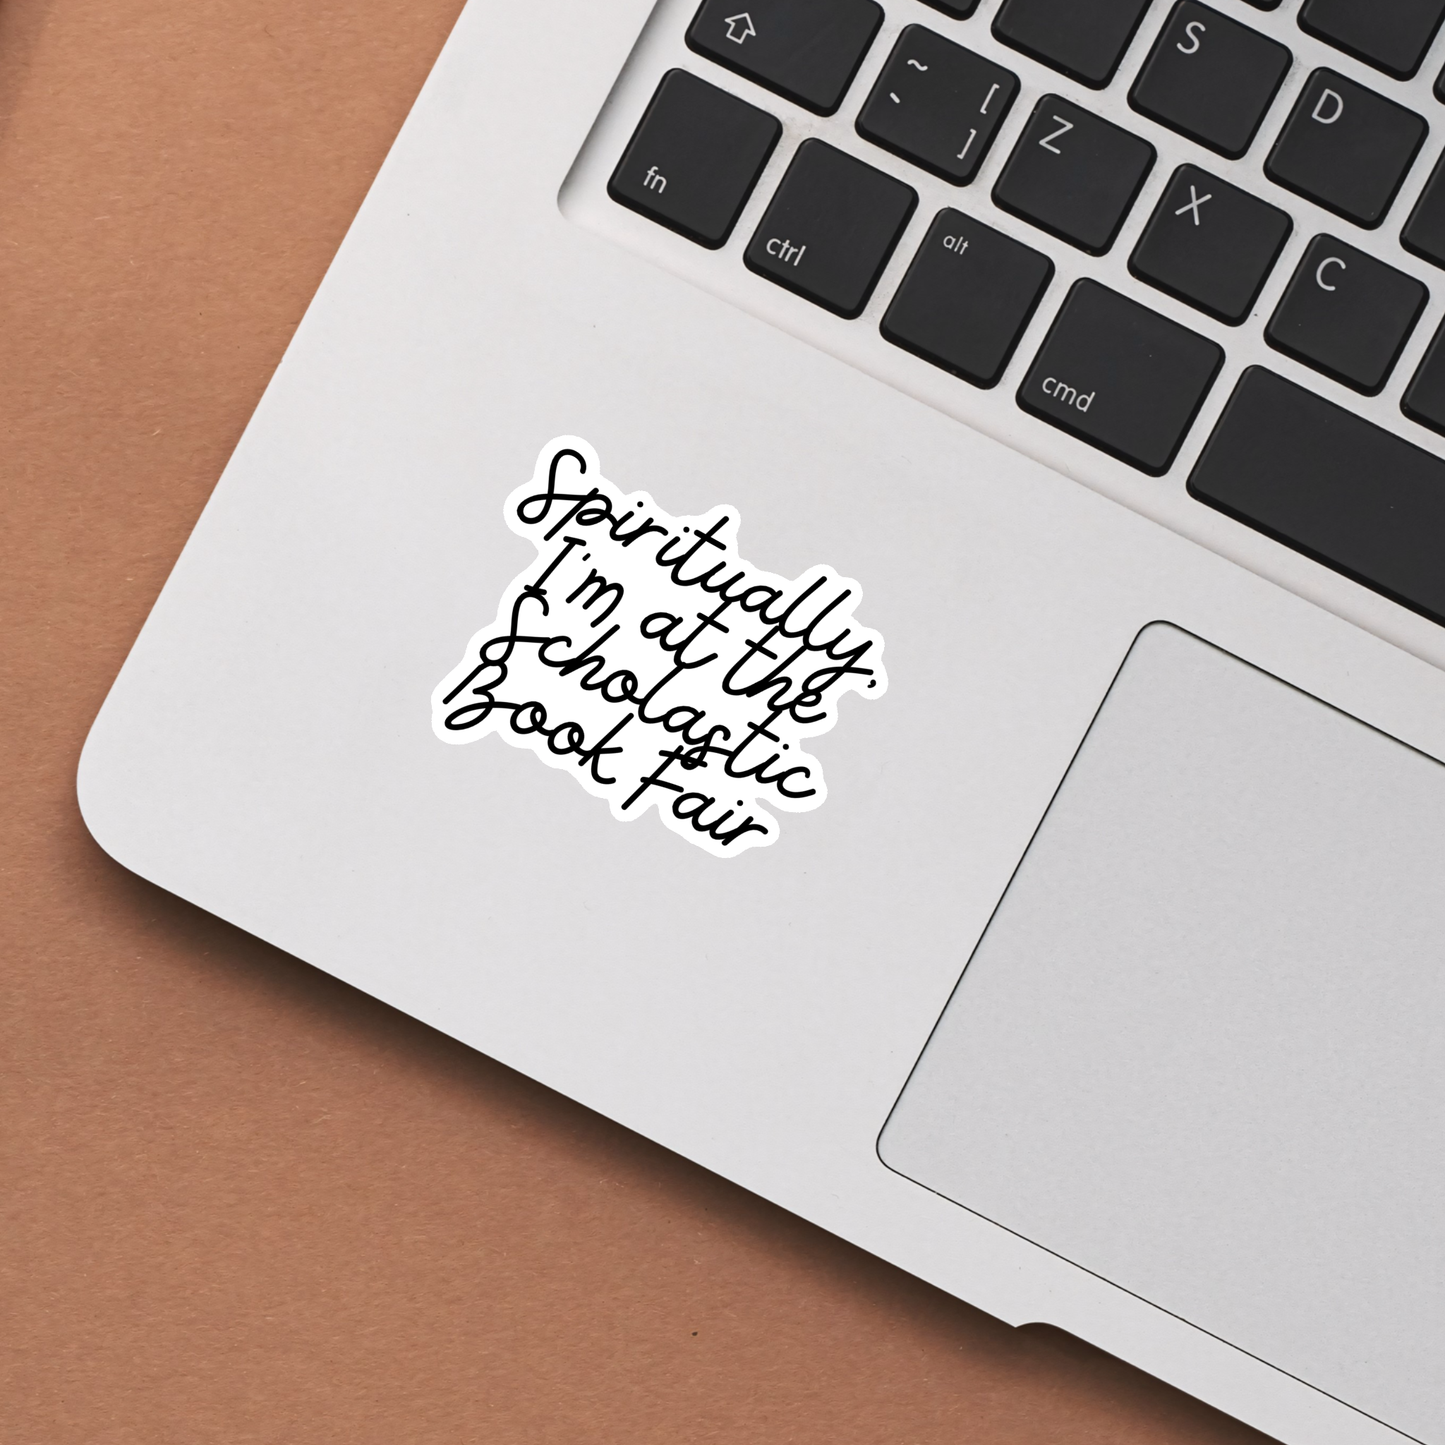 S
D
~ [
` ]
Z
X
C
fn
ctrl
alt
cmd
Spiritually,
I'm at the
Scholastic
Book Fair